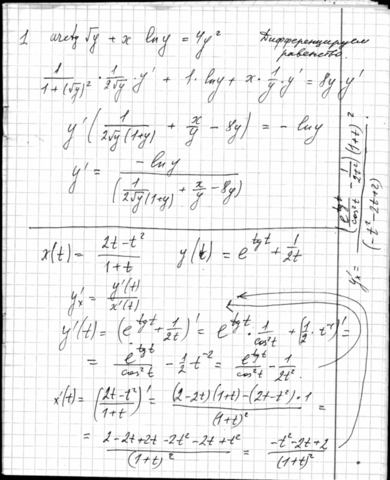 1 arctg √y + x ln y = 4y² Дифференцируем
равенство.
1/(1+(√y)²) · 1/(2√y) · y' + 1·ln y + x · 1/y · y' = 8y · y'
y' (1/(2√y(1+y)) + x/y − 8y) = −ln y
y' = −ln y / (1/(2√y(1+y)) + x/y − 8y)
x(t) = (2t−t²)/(1+t) y(t) = e^(tg t) + 1/(2t)
y'ₓ = y'(t)/x'(t)
y'(t) = (e^(tg t) + 1/(2t))' = e^(tg t) · 1/(cos² t) + (1/2 · t⁻¹)' =
= e^(tg t)/(cos² t) − 1/2 t⁻² = e^(tg t)/(cos² t) − 1/(2t²)
x'(t) = ((2t−t²)/(1+t))' = ((2−2t)(1+t)−(2t−t²)·1)/(1+t)² =
= (2−2t+2t−2t²−2t+t²)/(1+t)² = (−t²−2t+2)/(1+t)²
y'ₓ = (e^(tg t)/(cos² t) − 1/(2t²))(1+t)² / (−t²−2t+2)